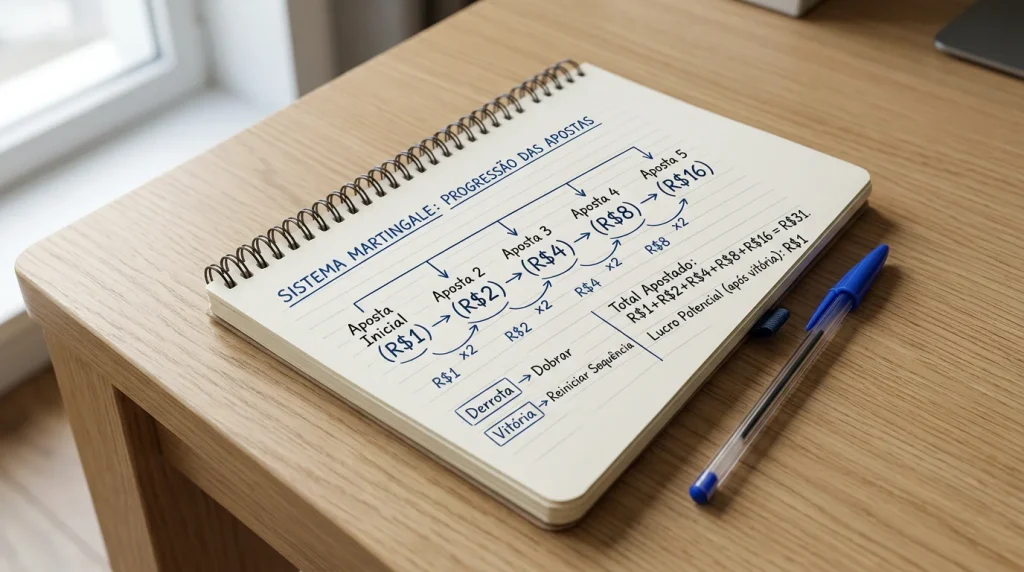 SISTEMA MARTINGALE: PROGRESSÃO DAS APOSTAS
Aposta
Inicial
(R$1)
Aposta 2
(R$2)
Aposta 3
(R$4)
Aposta 4
(R$8)
Aposta 5
(R$16)
R$1
x2
R$2
x2
R$4
x2
R$8
x2
Derrota → Dobrar
Vitória → Reiniciar Sequência
Total Apostado:
R$1+R$2+R$4+R$8+R$16 = R$31.
Lucro Potencial (após vitória): R$1